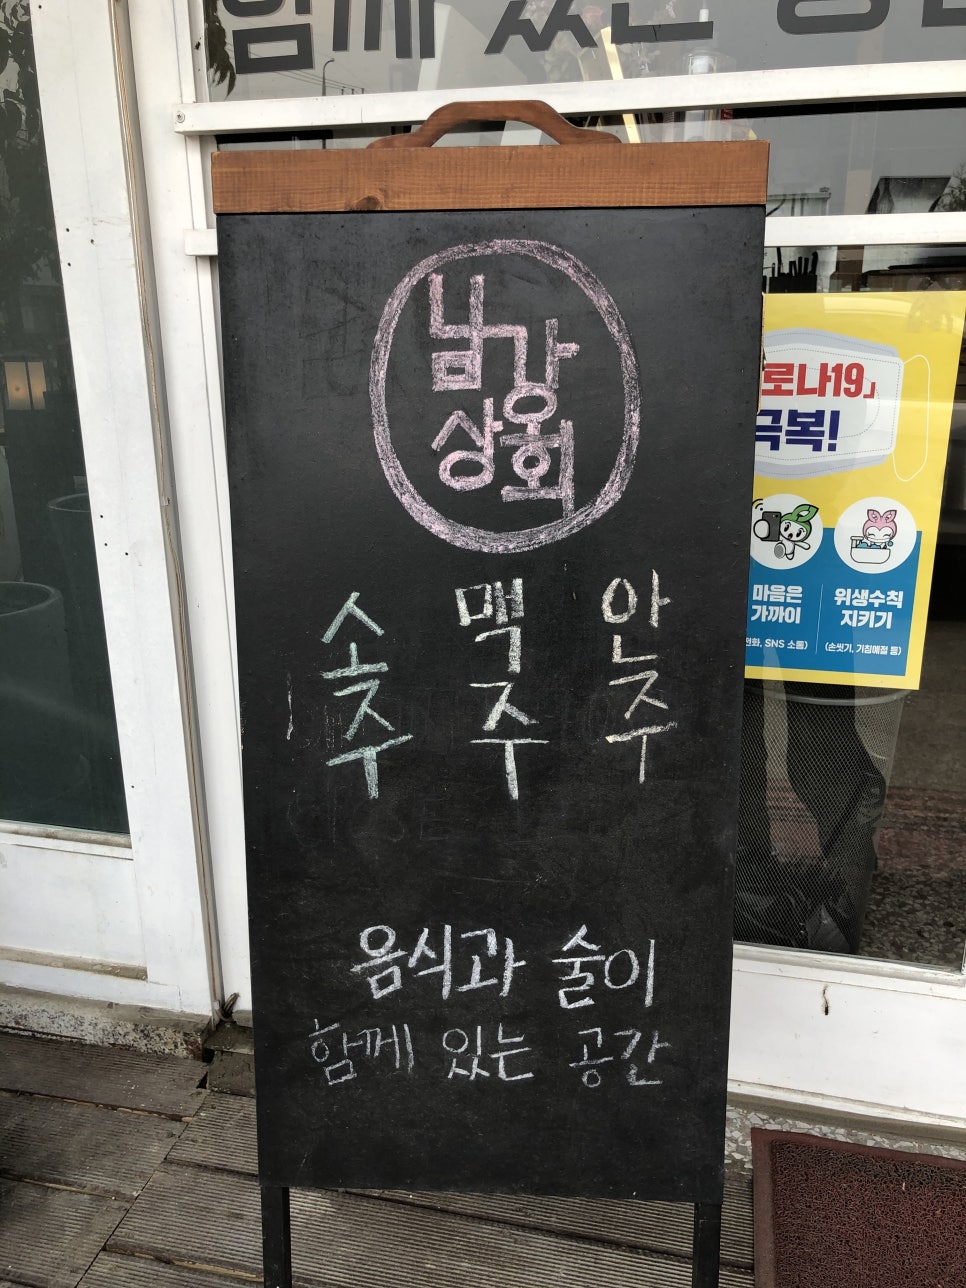 함께 있는 공간
남강
상회
소주 맥주 안주
음식과 술이
함께 있는 공간
로나19」
극복!
마음은
가까이
위생수칙
지키기
전화, SNS 소통)
(손씻기, 기침예절 등)